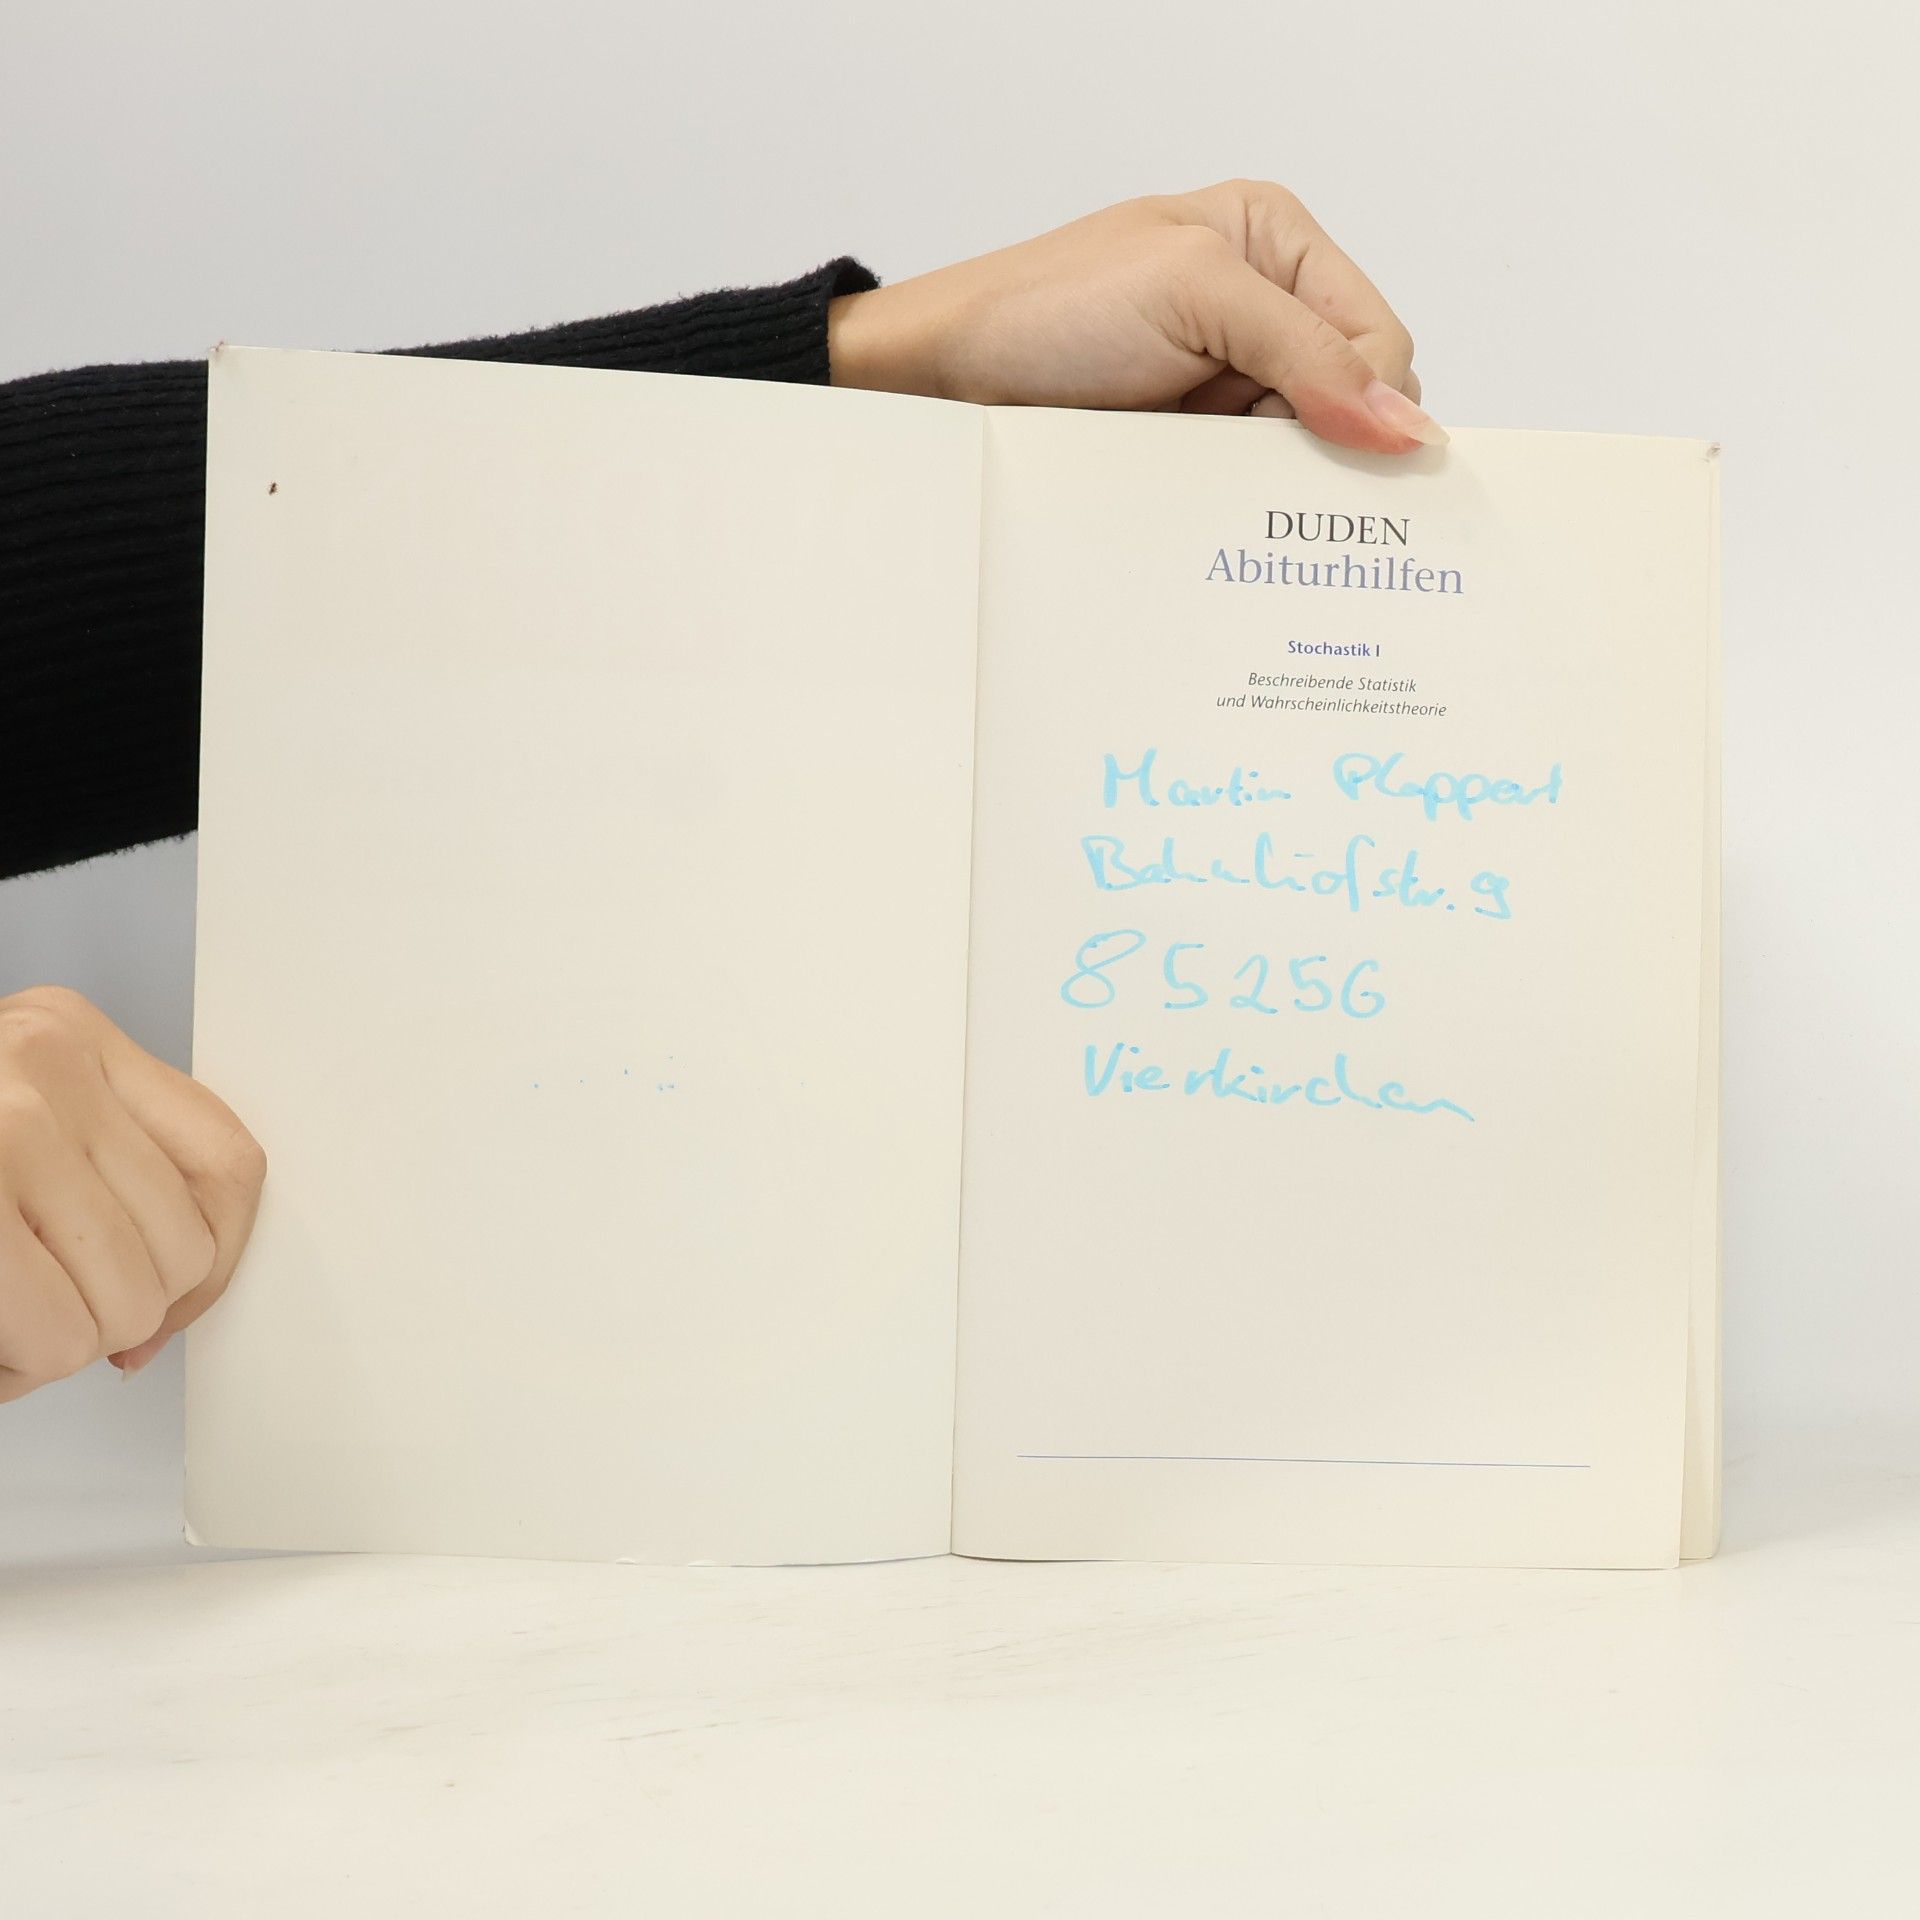 DUDEN
Abiturhilfen
Stochastik I
Beschreibende Statistik
und Wahrscheinlichkeitstheorie
Martin Plappert
Bahnhofstr. 9
85256
Vierkirchen